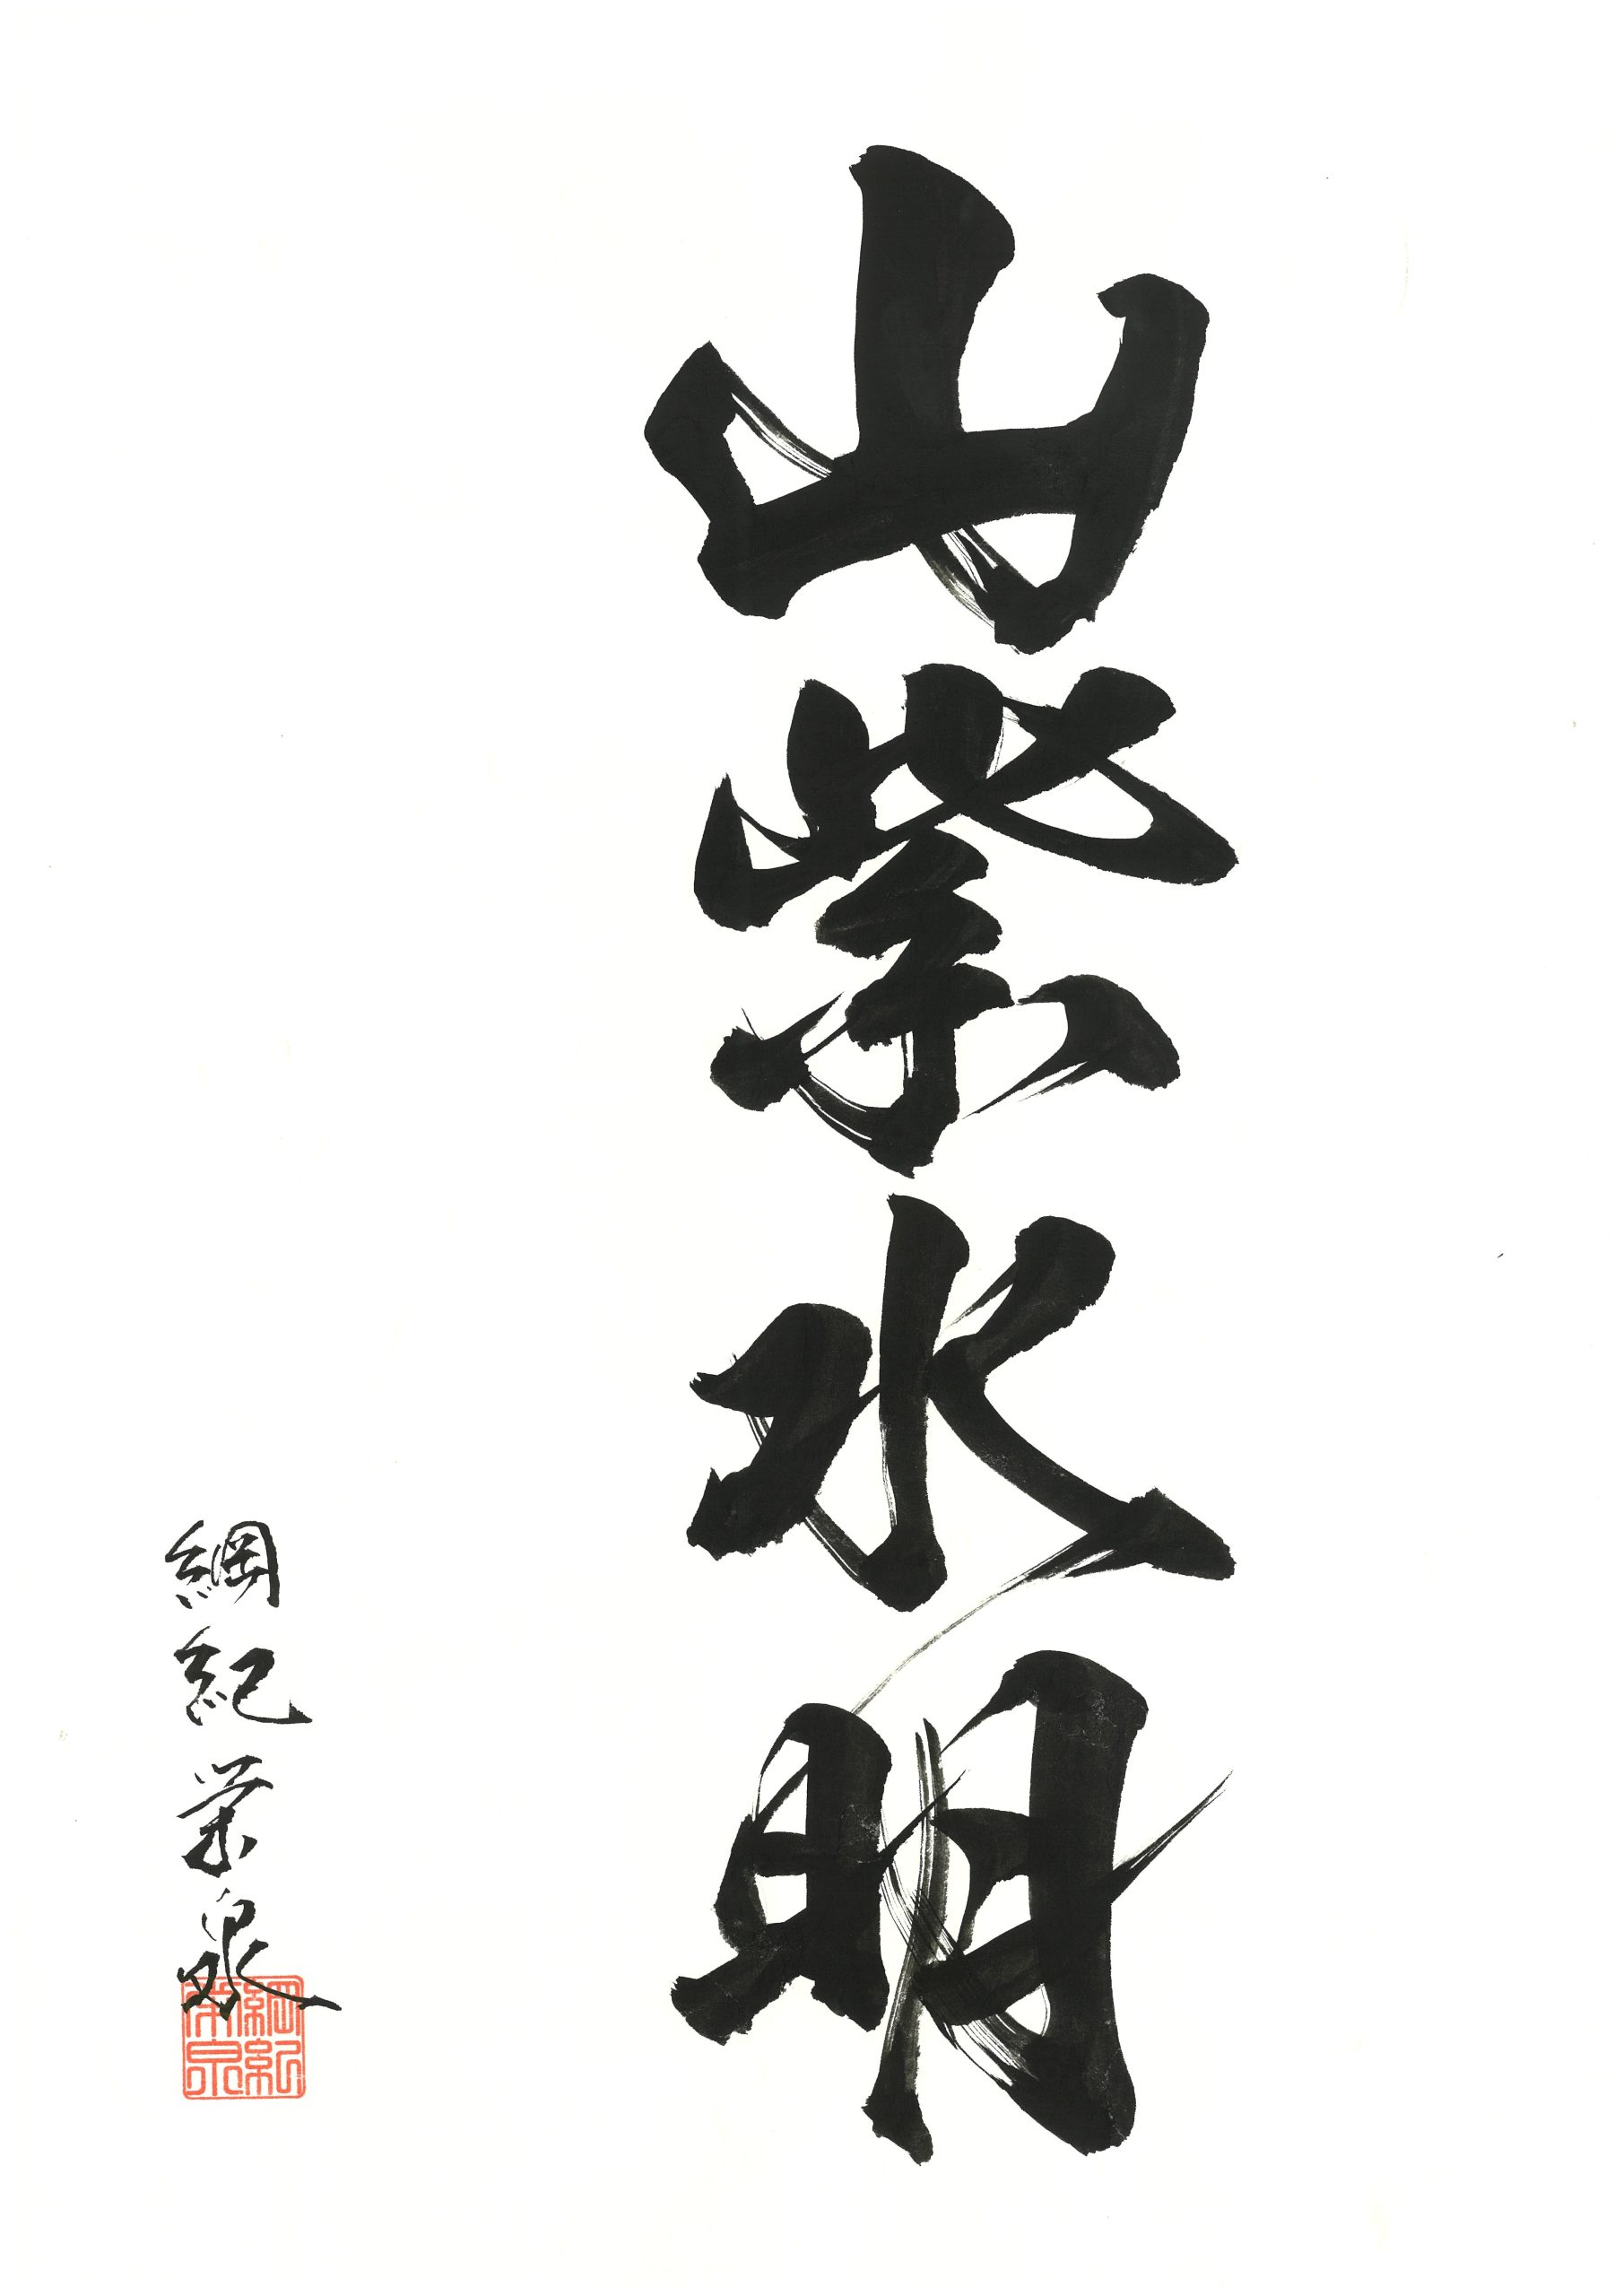 山紫水明
綱紀栄泉
綱紀
栄泉